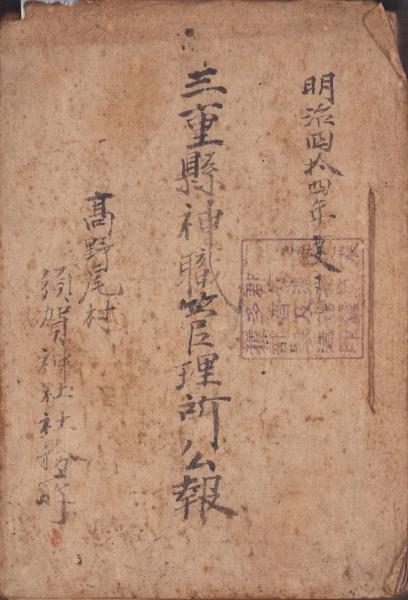 明治四拾四年度
三重縣神職管理所公報
髙野尾村
須賀神社社務所